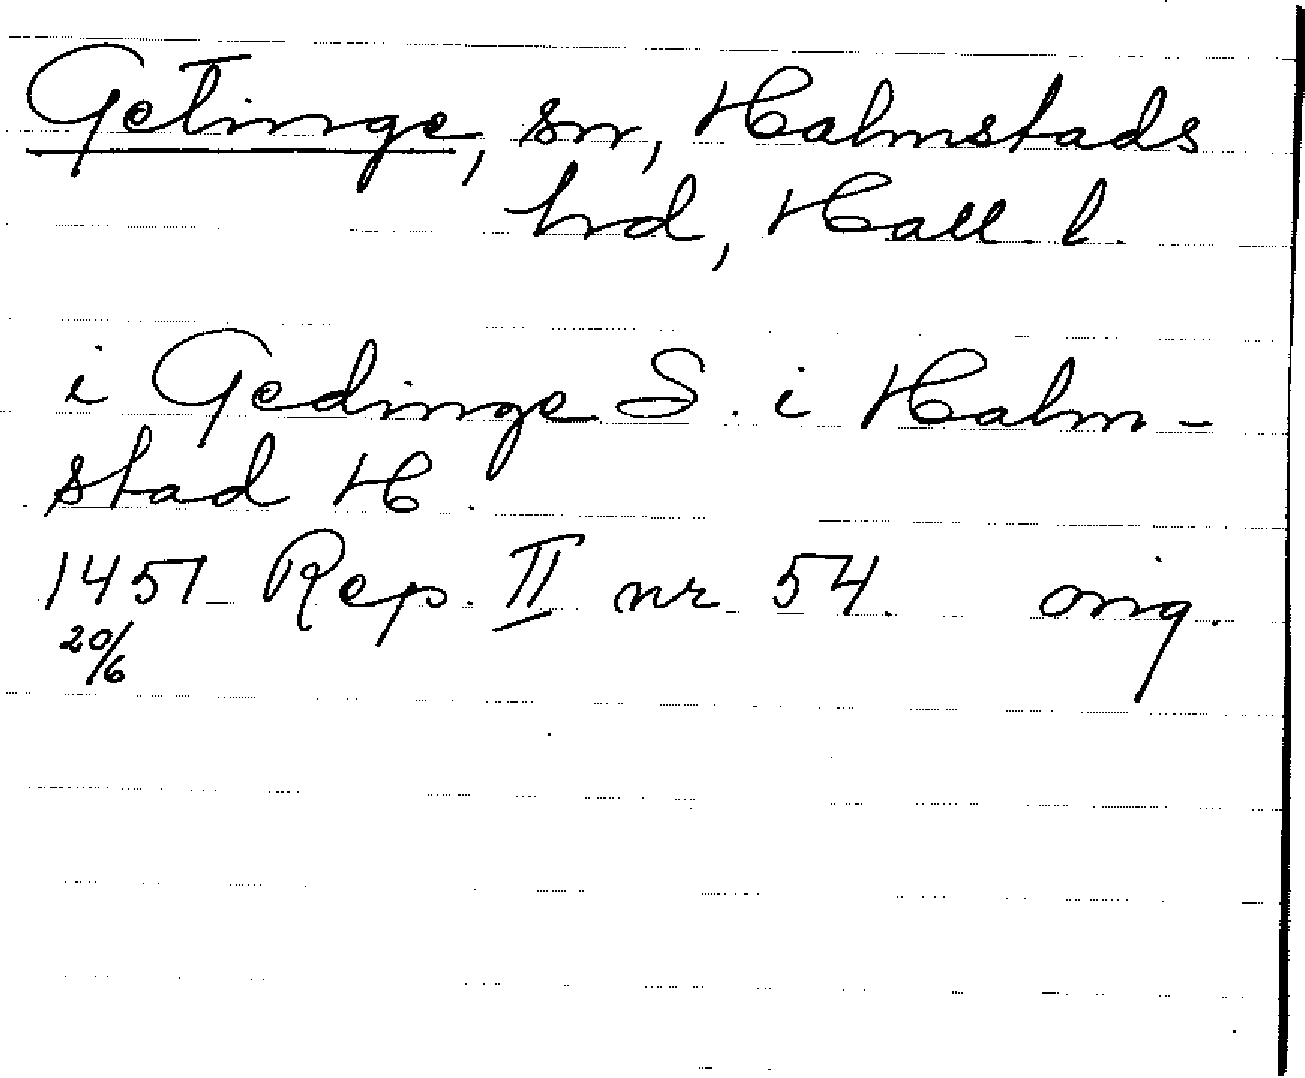 Getinge, sn, Halmstads
hd, Hall. l.
i Gedinge S. i Halm-
stad H.
1451 Rep. II nr 54. orig.
20/6